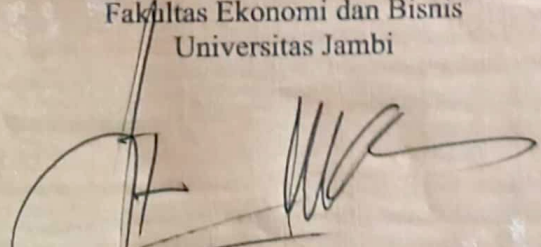 Fakultas Ekonomi dan Bisnis
Universitas Jambi